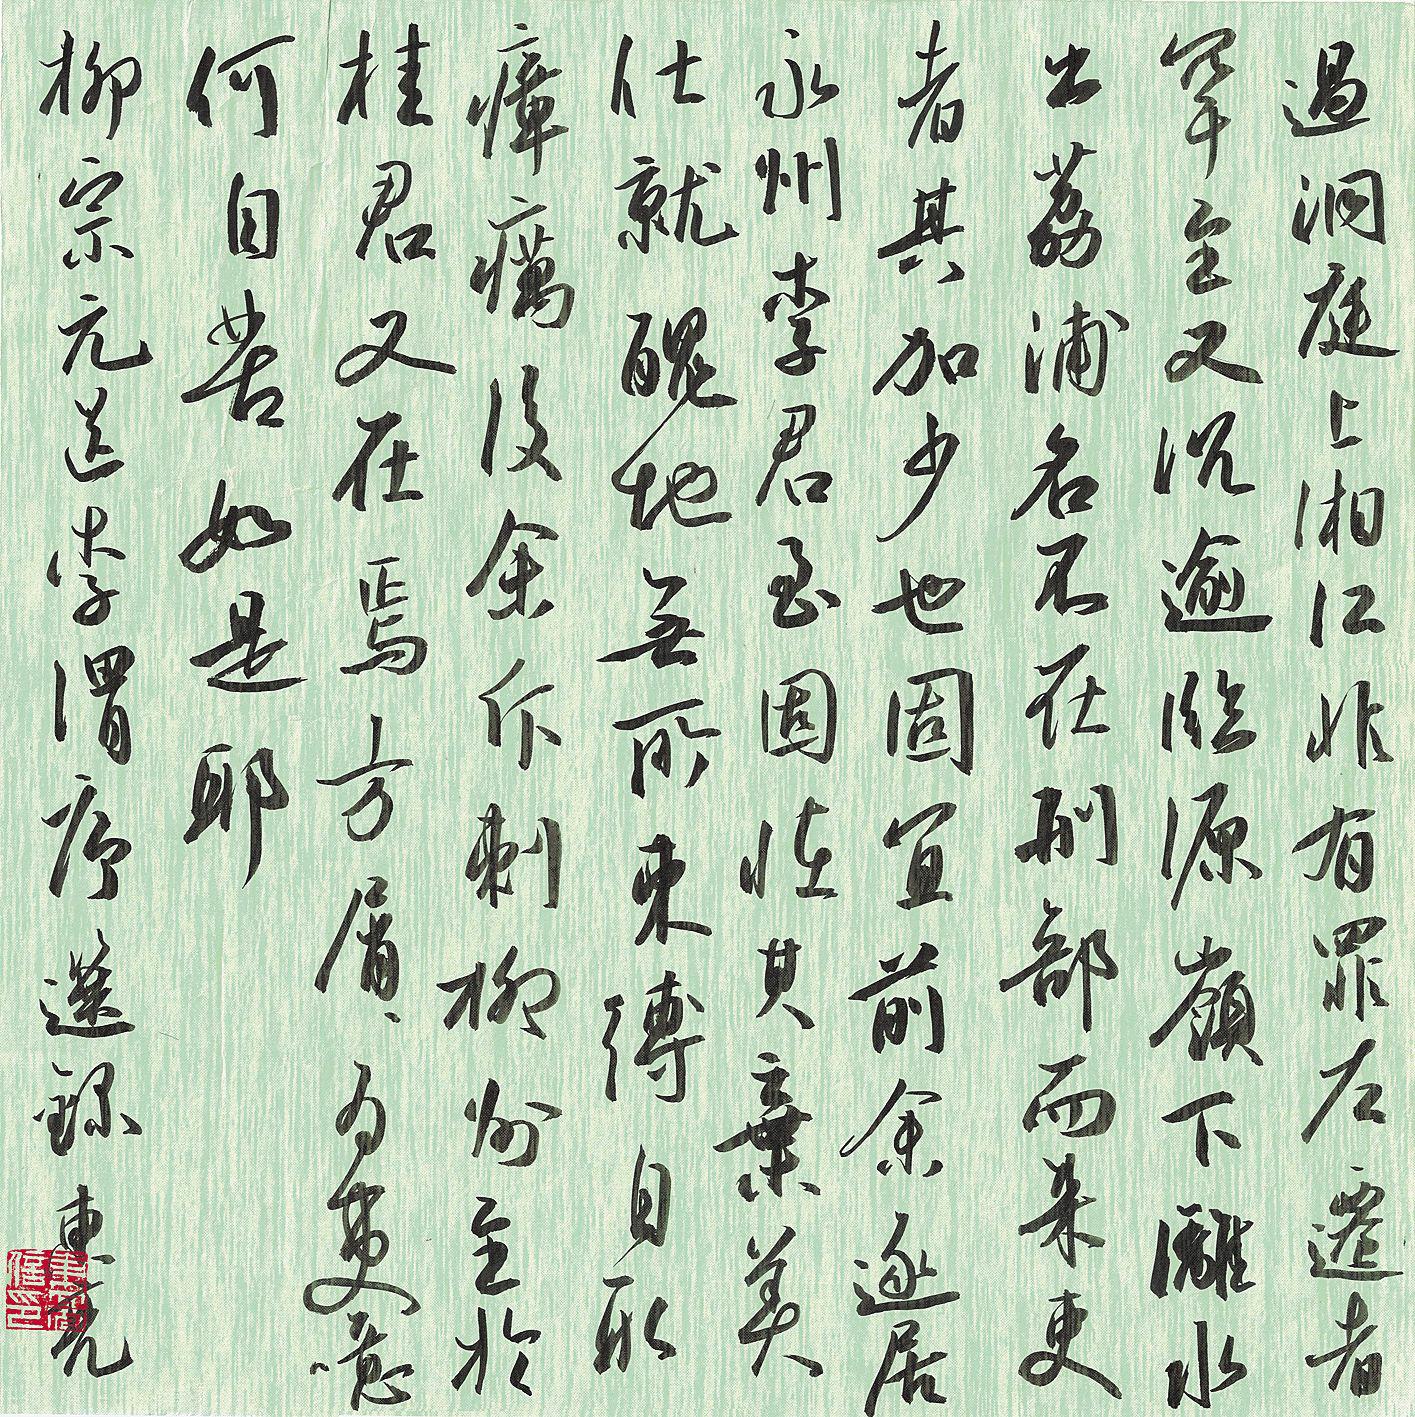 過洞庭上湘江非有罪左遷者
罕至又況逾臨源嶺下灕水
出荔浦名不在刑部而來吏
者其加少也固宜前余逐居
永州李君至固怪其棄美
仕就醜地無所束縛自取
瘴癘後余斥刺柳州至於
桂君又在焉方屑屑為吏噫
何自苦如是耶
柳宗元送李渭序選錄 東亮